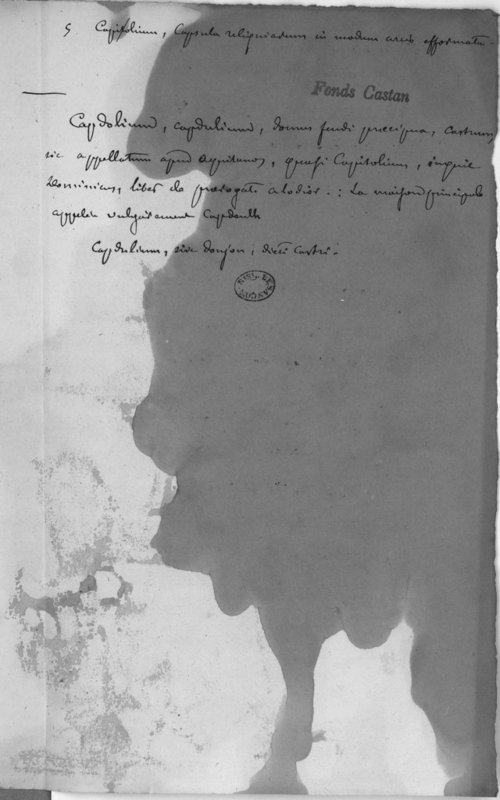 5 Capitolium, Capsula reliquiarum in modum arcis efformata.
Fonds Castan
Capdolium, capdulium, domus feudi præcipua, castrum,
sic appellatum apud Aquitanos, quasi Capitolium, inquit
Dominicus, liber de prærogat. alodior. : La maison principale
appelée vulgairement Capdeulh
Capdulium, sive donjon, dicti castri.
BIBL. BESANÇON